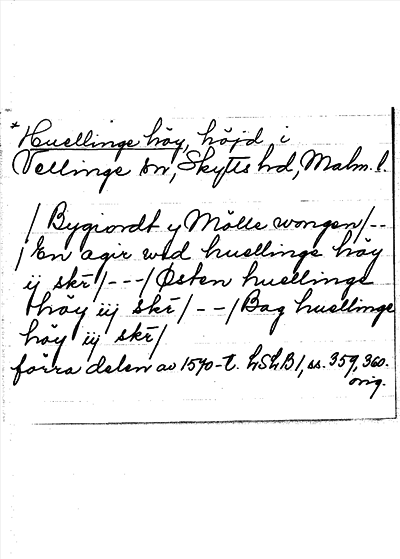 *Huellinge höy, höjd i
Vellinge sn, Skytts hd, Malm. l.
/ Bygiordt y Mölle wongen/--
/ En agir wed huellinge höy
ij skr̄/---/Østen huellinge
höy iij skr̄/--/Bag huellinge
höy iij skr̄/
förra delen av 1570-t. LSLB 1, ss. 359, 360.
orig.